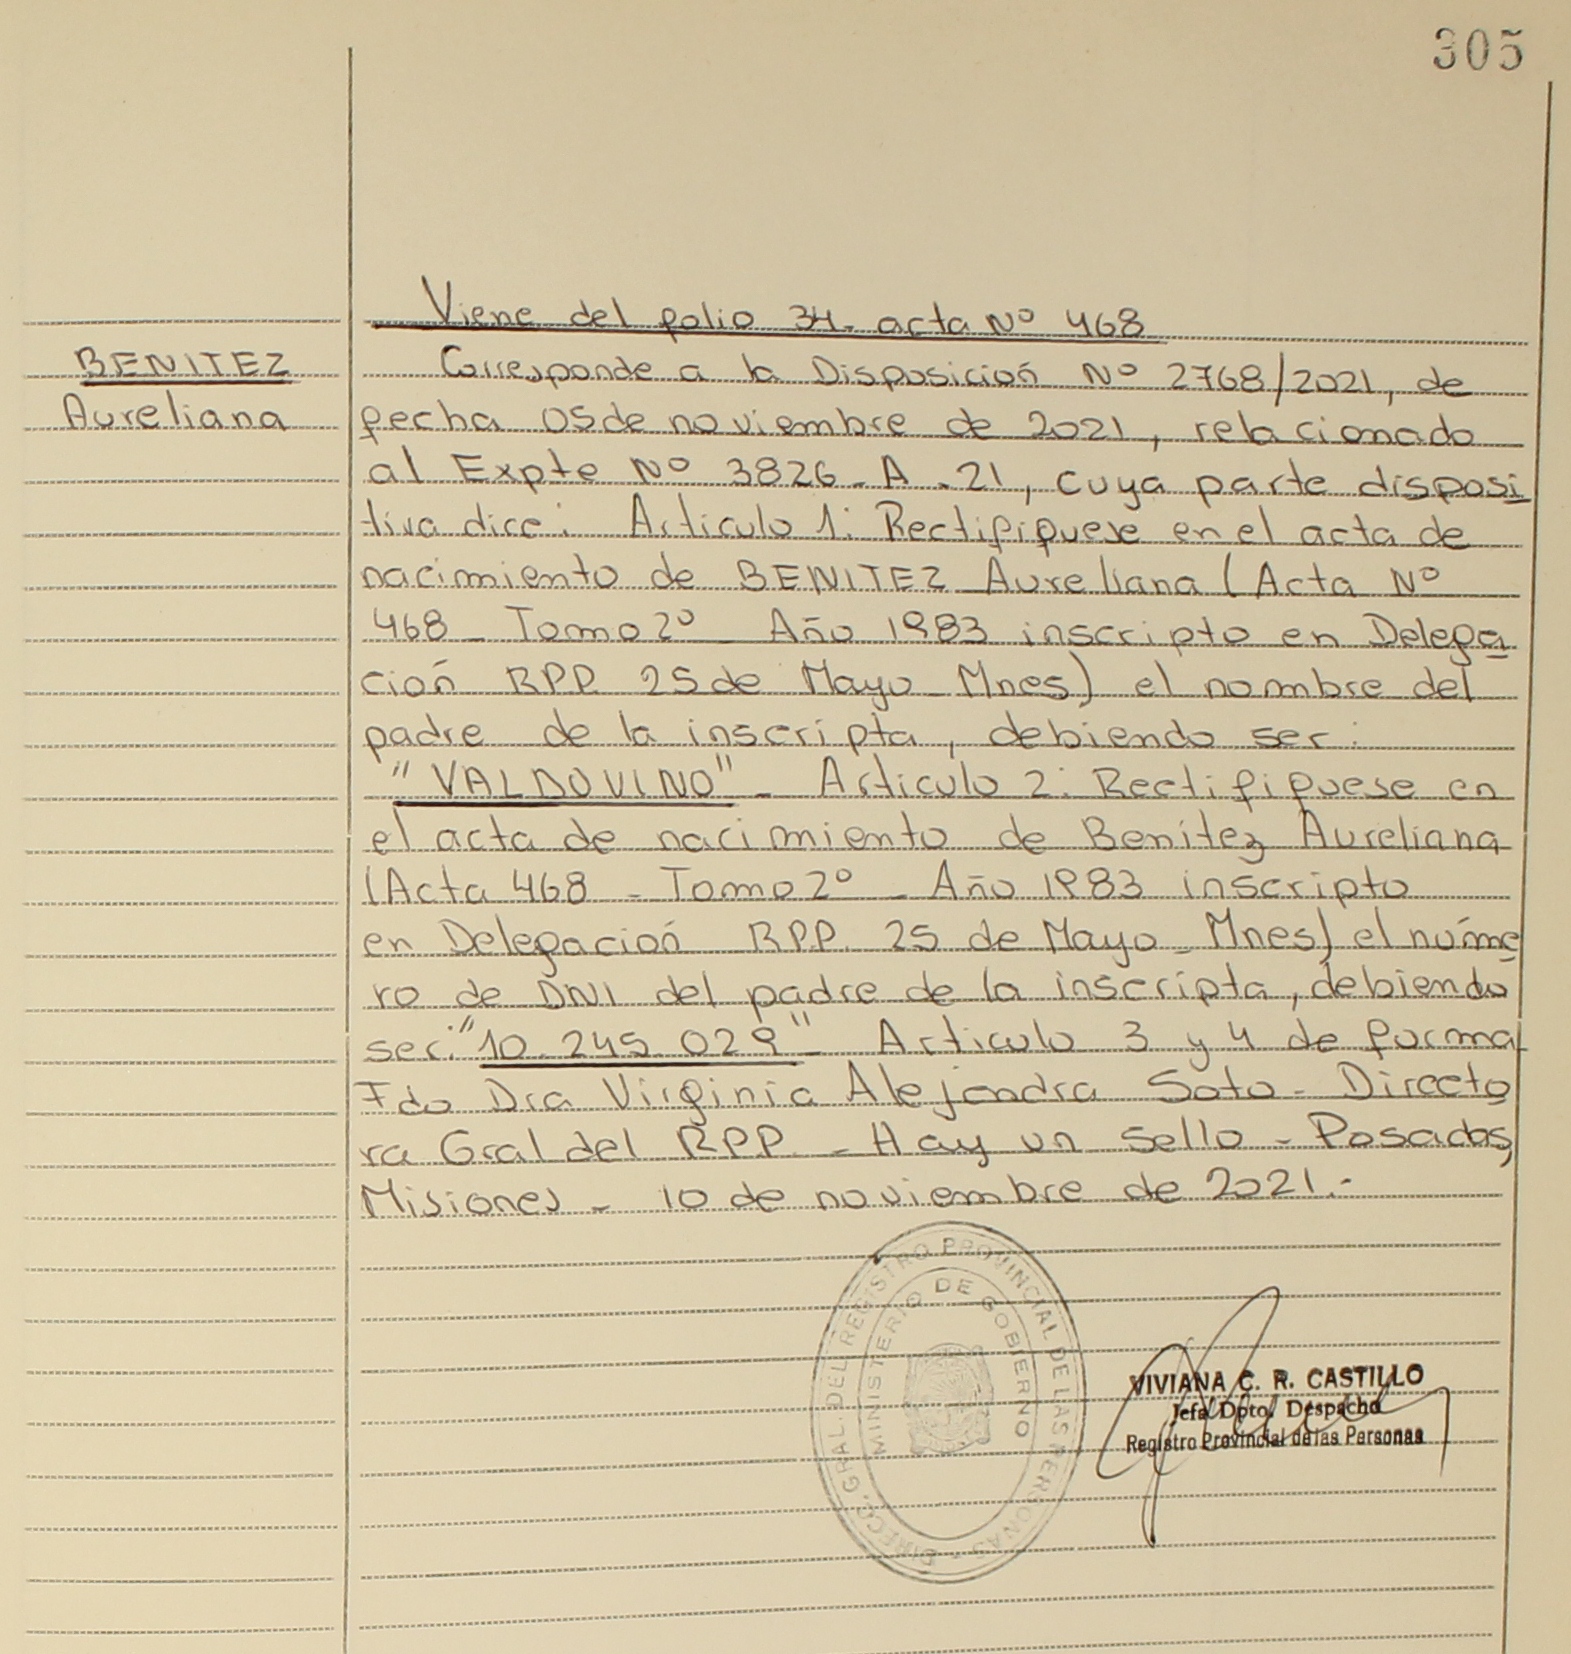 305
Viene del folio 34. acta Nº 468
BENITEZ
Aureliana
Corresponde a la Disposición Nº 2768/2021, de
fecha 05 de noviembre de 2021, relacionado
al Expte Nº 3826-A-21, cuya parte disposi
tiva dice: Artículo 1: Rectifíquese en el acta de
nacimiento de BENITEZ Aureliana (Acta Nº
468 - Tomo 2º - Año 1983 inscripto en Delega
ción RPP. 25 de Mayo - Mnes) el nombre del
padre de la inscripta, debiendo ser:
"VALDOVINO" - Articulo 2: Rectifiquese en
el acta de nacimiento de Benítez Aureliana
(Acta 468 - Tomo 2º - Año 1983 inscripto
en Delegación RPP. 25 de Mayo - Mnes) el núme
ro de DNI del padre de la inscripta, debiendo
ser: "10.245.029" - Articulo 3 y 4 de forma
Fdo Dra Virginia Alejandra Soto - Directo
ra Gral del RPP. - Hay un sello - Posadas,
Misiones - 10 de noviembre de 2021.-
DIRECC. GRAL. DEL REGISTRO PROVINCIAL DE LAS PERSONAS
MINISTERIO DE GOBIERNO
VIVIANA C. R. CASTILLO
Jefa Dpto. Despacho
Registro Provincial de las Personas